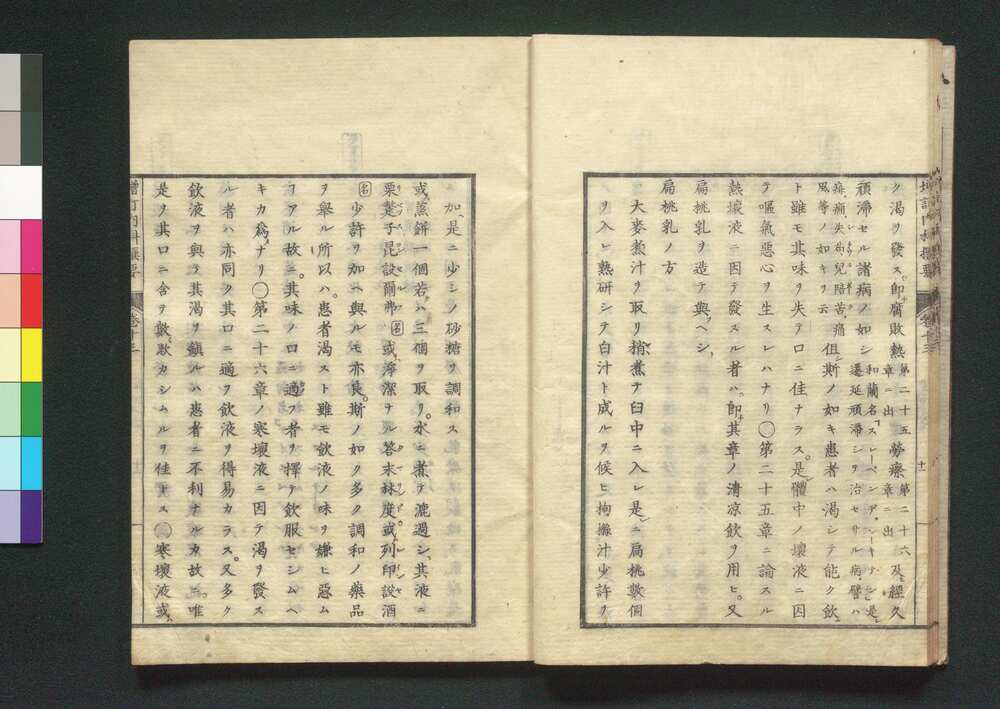 ク渇ヲ發ス。即腐敗熱 第二十五章ニ出 勞瘵 第二十六章ニ出 及ヒ經久
頑滯セル諸病ノ如シ 和蘭名「スレーペンデ、シーキテン」是レ遷延頑滯シヲ治セサル病譬ハ
痲、痛、失荷兒陪苦、痛風、等ノ如キヲ云 但斯ノ如キ患者ハ渇シテ能ク飲
ト雖モ其味ヲ失テ口ニ佳ナラス。是レ體中ノ壞液ニ因
テ嘔氣惡心ヲ生スレハナリ○第二十五章ニ論スル
熱壞液ニ因テ發スル者ハ。即其章ノ清凉飲ヲ用ヒ。又
扁桃乳ヲ造テ與ヘシ、
扁桃乳ノ方
大麥煮汁ヲ取リ稍煮テ臼中ニ入レ是ニ扁桃數個
ヲ入レ熱研シテ白汁ト成ルヲ候ヒ拘櫞汁少許ヲ
加、是ニ少シノ砂糖ヲ調和ス
或蒸餅一個若ハ三個ヲ取リ。水ニ煮テ漉過シ、其液ニ
栗斐子昆設爾弗 名 或淨潔ナル答末林度或列印設酒
名 少許ヲ加ヘ與ルモ亦良。斯ノ如ク多ク調和ノ藥品
ヲ舉ル所以ハ。患者渇スト雖モ飲液ノ味ヲ嫌ヒ惡ム
コアル故ニ。其味ノ口ニ適フ者ヲ擇テ飲服セシムヘ
キカ爲ナリ○第二十六章ノ寒壞液ニ因テ渇ヲ發ス
ル者ハ亦同ク其口ニ適ヲ飲液ヲ得易カラス。又多ク
飲液ヲ與テ其渇ヲ鎭ルハ患者ニ不利ナルカ故ニ。唯
是ヲ其口ニ含テ數漱カシムルヲ佳トス○寒壞液或